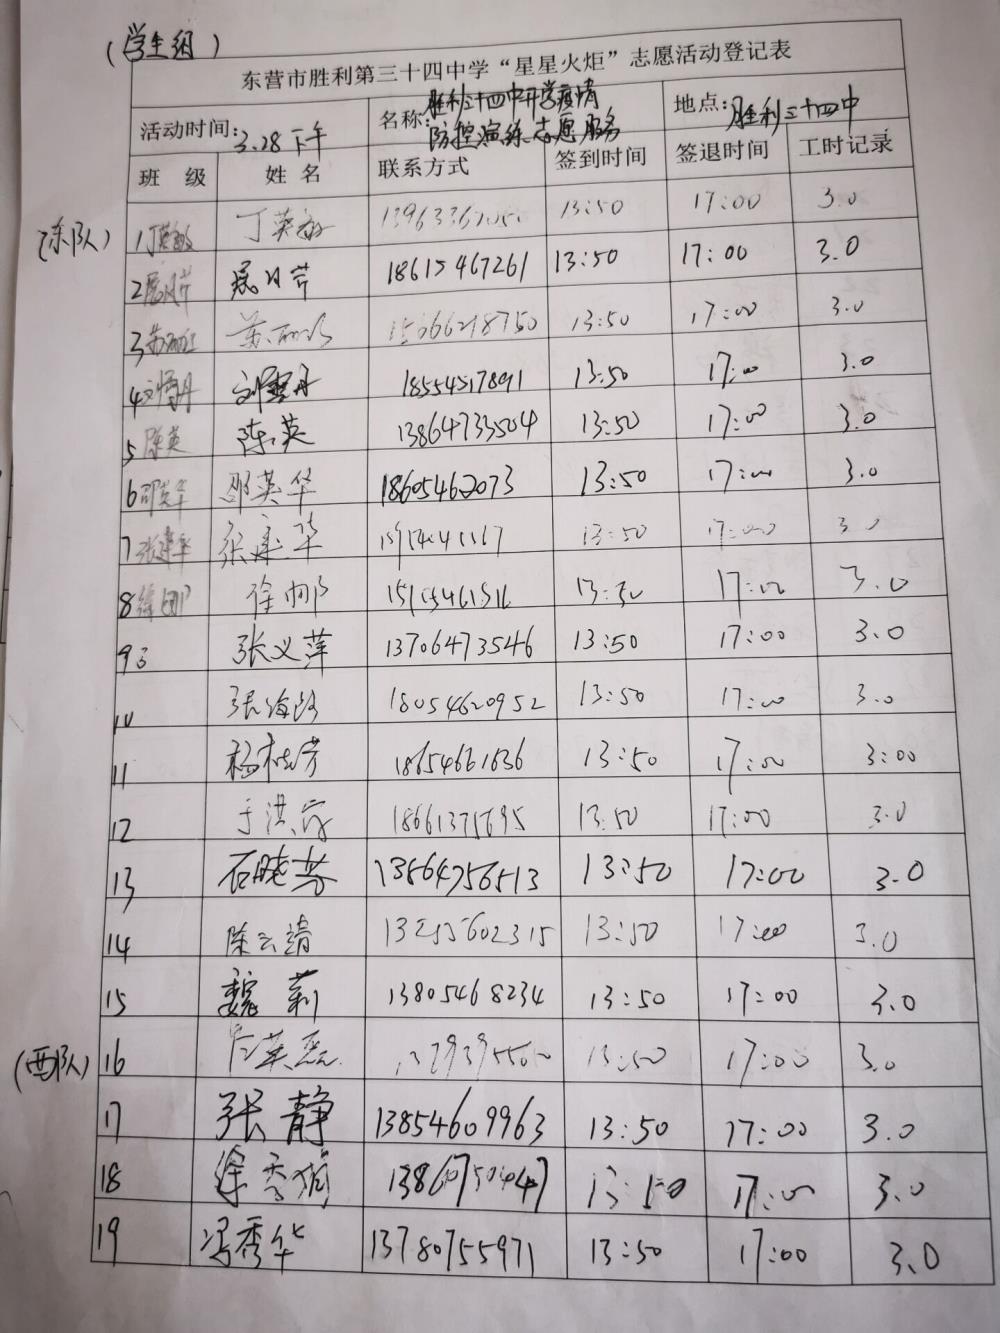 (学生组)
东营市胜利第三十四中学“星星火炬”志愿活动登记表
活动时间:3.28下午 名称:胜利三十四中开学疫情防控演练志愿服务 地点:胜利三十四中
班 级 姓 名 联系方式 签到时间 签退时间 工时记录
(东队) 1丁英敏 丁英敏 13:50 17:00 3.0
2 18615467261 13:50 17:00 3.0
3 15666218750 13:50 17:00 3.0
4 18554517891 13:50 17:00 3.0
5陈英 陈英 13864733504 13:50 17:00 3.0
6邵英华 邵英华 18605462073 13:50 17:00 3.0
7张建华 张建华 13:50 17:00 3.0
8徐娜 徐娜 13:50 17:00 3.0
9 张义萍 13706473546 13:50 17:00 3.0
10 18054620952 13:50 17:00 3.0
11 杨桂芳 18654661636 13:50 17:00 3:00
12 18661375695 13:50 17:00 3.0
13 石晓芳 13864756513 13:50 17:00 3.0
14 陈云靖 13255602315 13:50 17:00 3.0
15 魏莉 13805468234 13:50 17:00 3.0
(西队) 16 13:50 17:00 3.0
17 张静 13854609963 13:50 17:00 3.0
18 13:50 17:00 3.0
19 冯秀华 13780755971 13:50 17:00 3.0